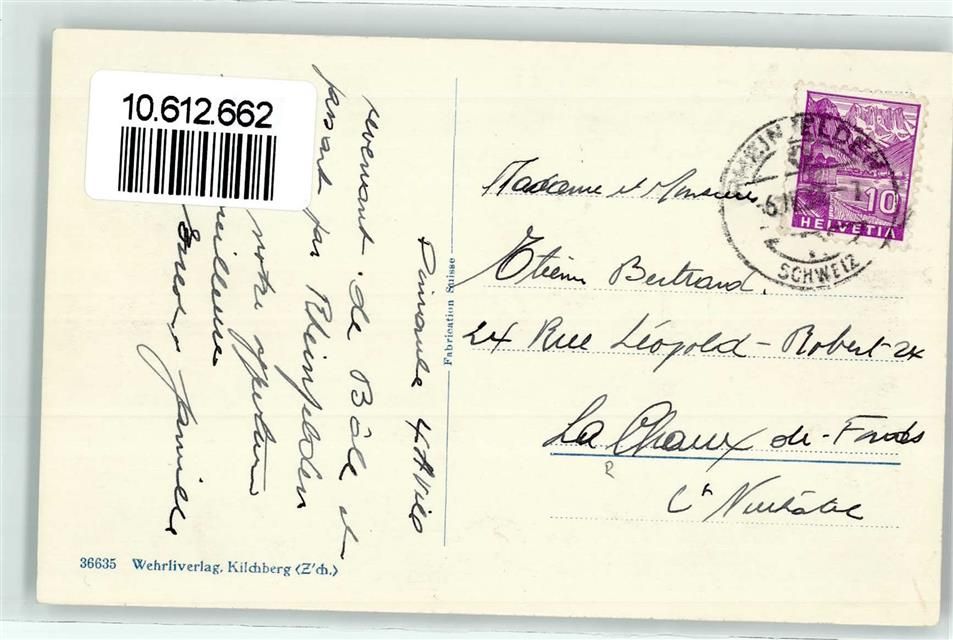 10.612.662
Dimanche 4 Avril
revenant de Bâle et
passant par Rheinfelden
notre
meilleures
famille
Fabrication Suisse
36635 Wehrliverlag, Kilchberg (Z'ch.)
RHEINFELDEN
SCHWEIZ
10
HELVETIA
Madame et Monsieur
Etienne Bertrand.
24 Rue Léopold-Robert 24
La Chaux-de-Fonds
Ct Neuchâtel